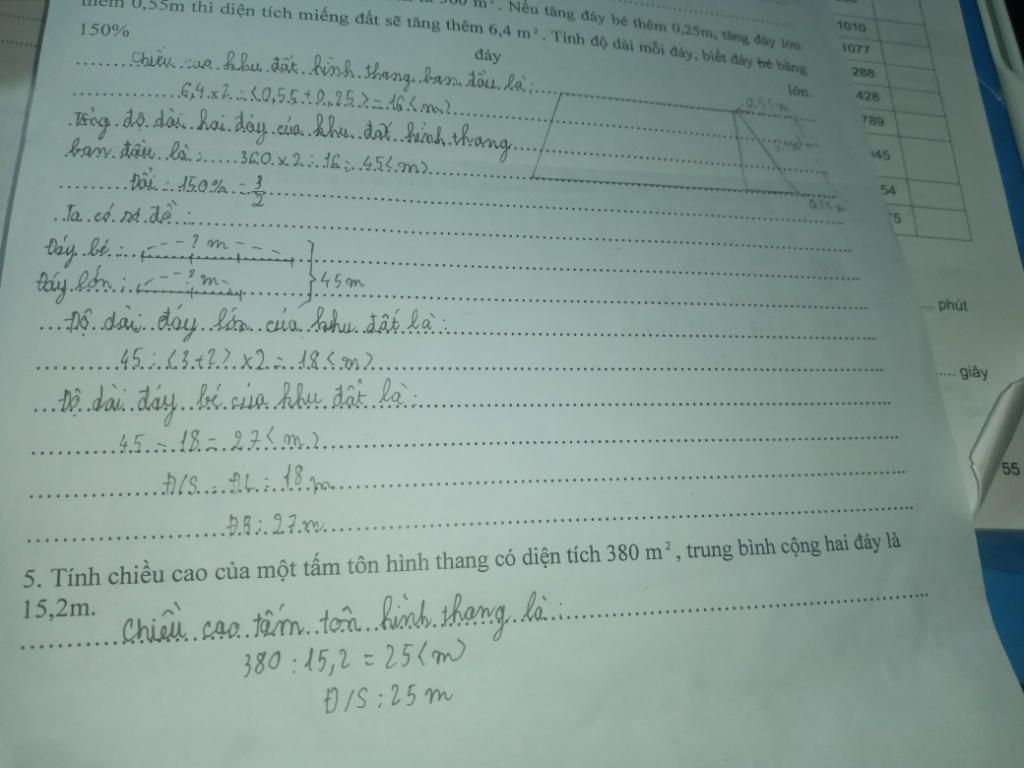 m². Nếu tăng đáy bé thêm 0,25m, tăng đáy lớn
thêm 0,55m thì diện tích miếng đất sẽ tăng thêm 6,4 m². Tính độ dài mỗi đáy, biết đáy bé bằng
150% đáy lớn.
Chiều cao khu đất hình thang ban đầu là:
6,4 x 2 : (0,55 + 0,25) = 16 (m)
0,55 m
Tổng độ dài hai đáy của khu đất hình thang
ban đầu là: 360 x 2 : 16 = 45 (m)
0,25 m
Đổi: 150% = 3/2
Ta có sơ đồ:
Đáy bé: ? m
Đáy lớn: ? m
45 m
Độ dài đáy lớn của khu đất là:
45 : (3 + 2) x 2 = 18 (m)
Độ dài đáy bé của khu đất là:
45 - 18 = 27 (m)
Đ/S: ĐL: 18 m
ĐB: 27 m
5. Tính chiều cao của một tấm tôn hình thang có diện tích 380 m², trung bình cộng hai đáy là
15,2m.
Chiều cao tấm tôn hình thang là:
380 : 15,2 = 25 (m)
Đ/S: 25 m
1010
1077
288
428
789
545
54
75
... phút
.... giây
55